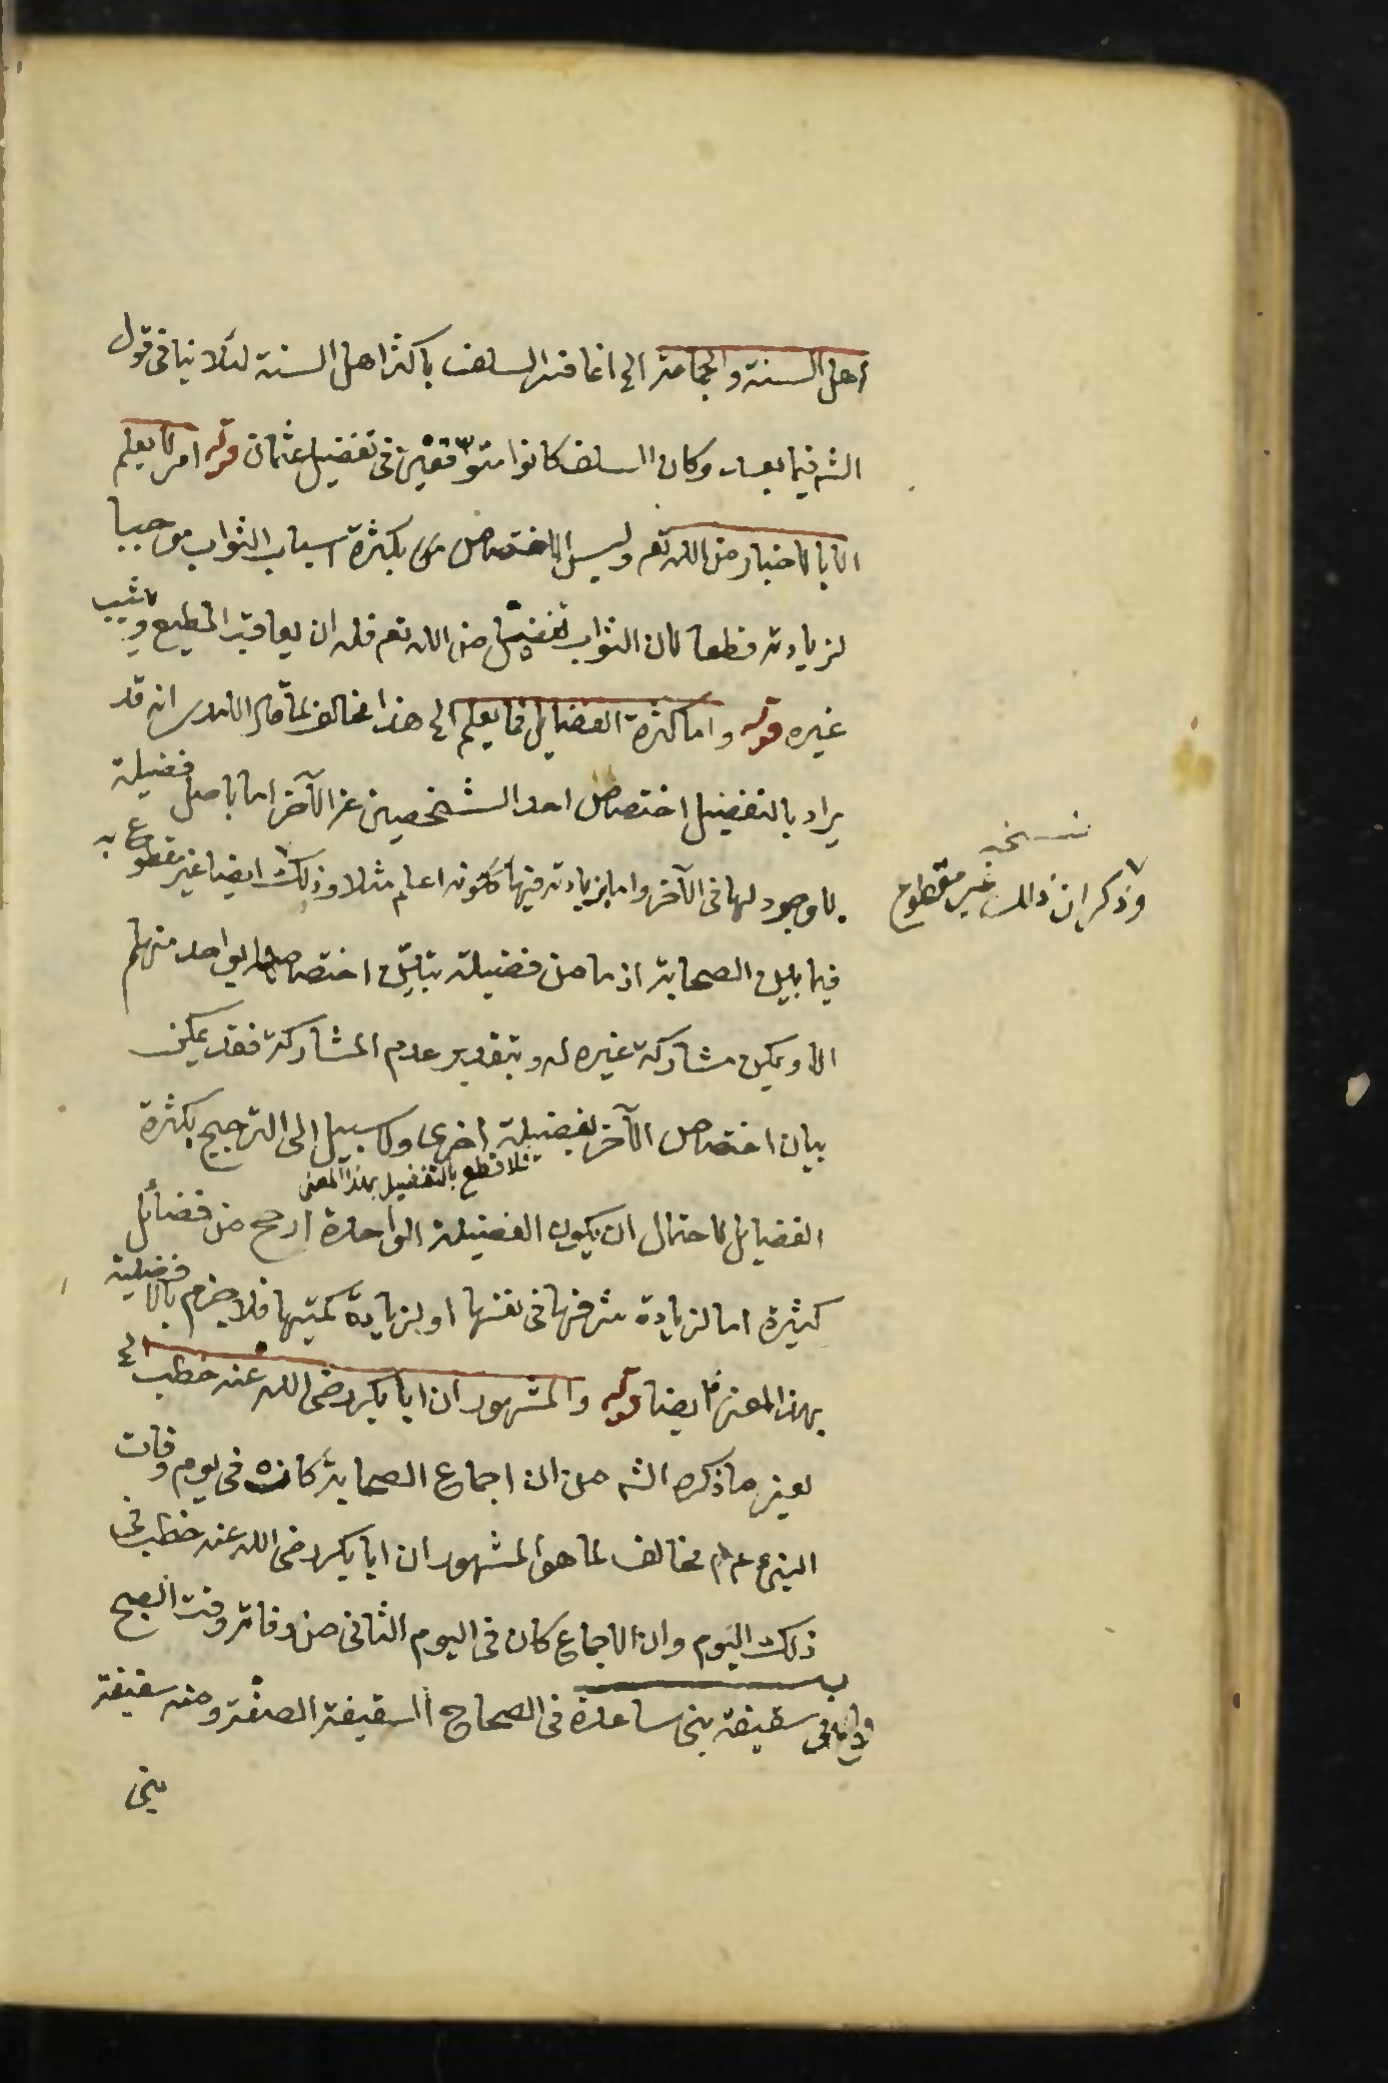 اهل السنة والجماعة الخ انما فسر السلف باكثر اهل السنة لئلا ينافى قول
الشه فيما بعد وكان السلف كانوا متوقفين فى تفضيل عثمان قوله امر لا يعلم
الا بالاخبار من الله تعم وليس الاختصاص بكثرة اسباب الثواب موجبا
لزيادته قطعا لان الثواب تفضيل من الله تعم فله ان يعاقب المطيع ويثيب
غيره قوله واما كثرة الفضايل فما يعلم الخ هذا مخالف لما قال الامدى انه قد
يراد بالتفضيل اختصاص احد الشخصين عن الآخر اما باصل فضيلة
لا وجود لها فى الآخر واما بزيادته فيها ككونه اعلم مثلا وذلك ايضا غير مقطوع به
نسخه
وذكر ان ذلك غير مقطوع
فيما بين الصحابة اذ ما من فضيلة تبين اختصاصها بواحد منهم
الا ويمكن مشاركة غيره له وبتقدير عدم المشاركة فقد يمكن
بيان اختصاص الآخر بفضيلة اخرى ولا سبيل الى الترجيح بكثرة
فلا قطع بالتفضيل بهذا المعنى
الفضايل لاحتمال ان يكون الفضيلة الواحدة ارجح من فضائل
كثيرة اما لزيادة شرفها فى نفسها او لزيادة كميتها فلا جزم بالافضلية
بهذا المعنى ايضا قوله والمشهور ان ابا بكر رضى الله عنه خطب الخ
يعنى ما ذكره الشه من ان اجماع الصحابة كان فى يوم وفات
النبى عم مخالف لما هو المشهور ان ابا بكر رضى الله عنه خطب فى
ذلك اليوم وان الاجماع كان فى اليوم الثانى من وفاته وقت الصبح
فى سقيفة بنى ساعدة فى الصحاح السقيفة الصفة ومنه سقيفة
بنى